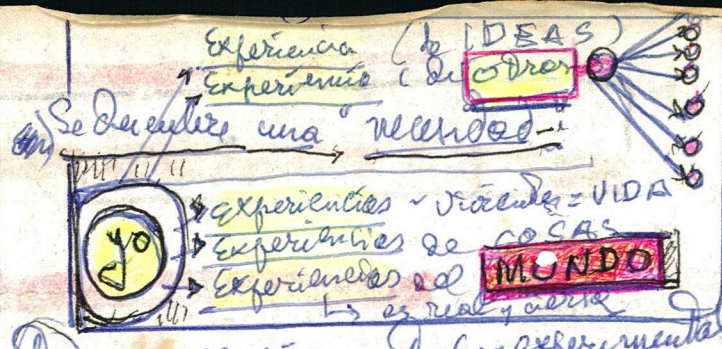 Experiencia (de IDEAS)
Experiencia (de otros
Se descubre una necesidad
Experiencias - vivencias = VIDA
yo
Experiencias de COSAS
Experiencias del MUNDO
es real y cierta